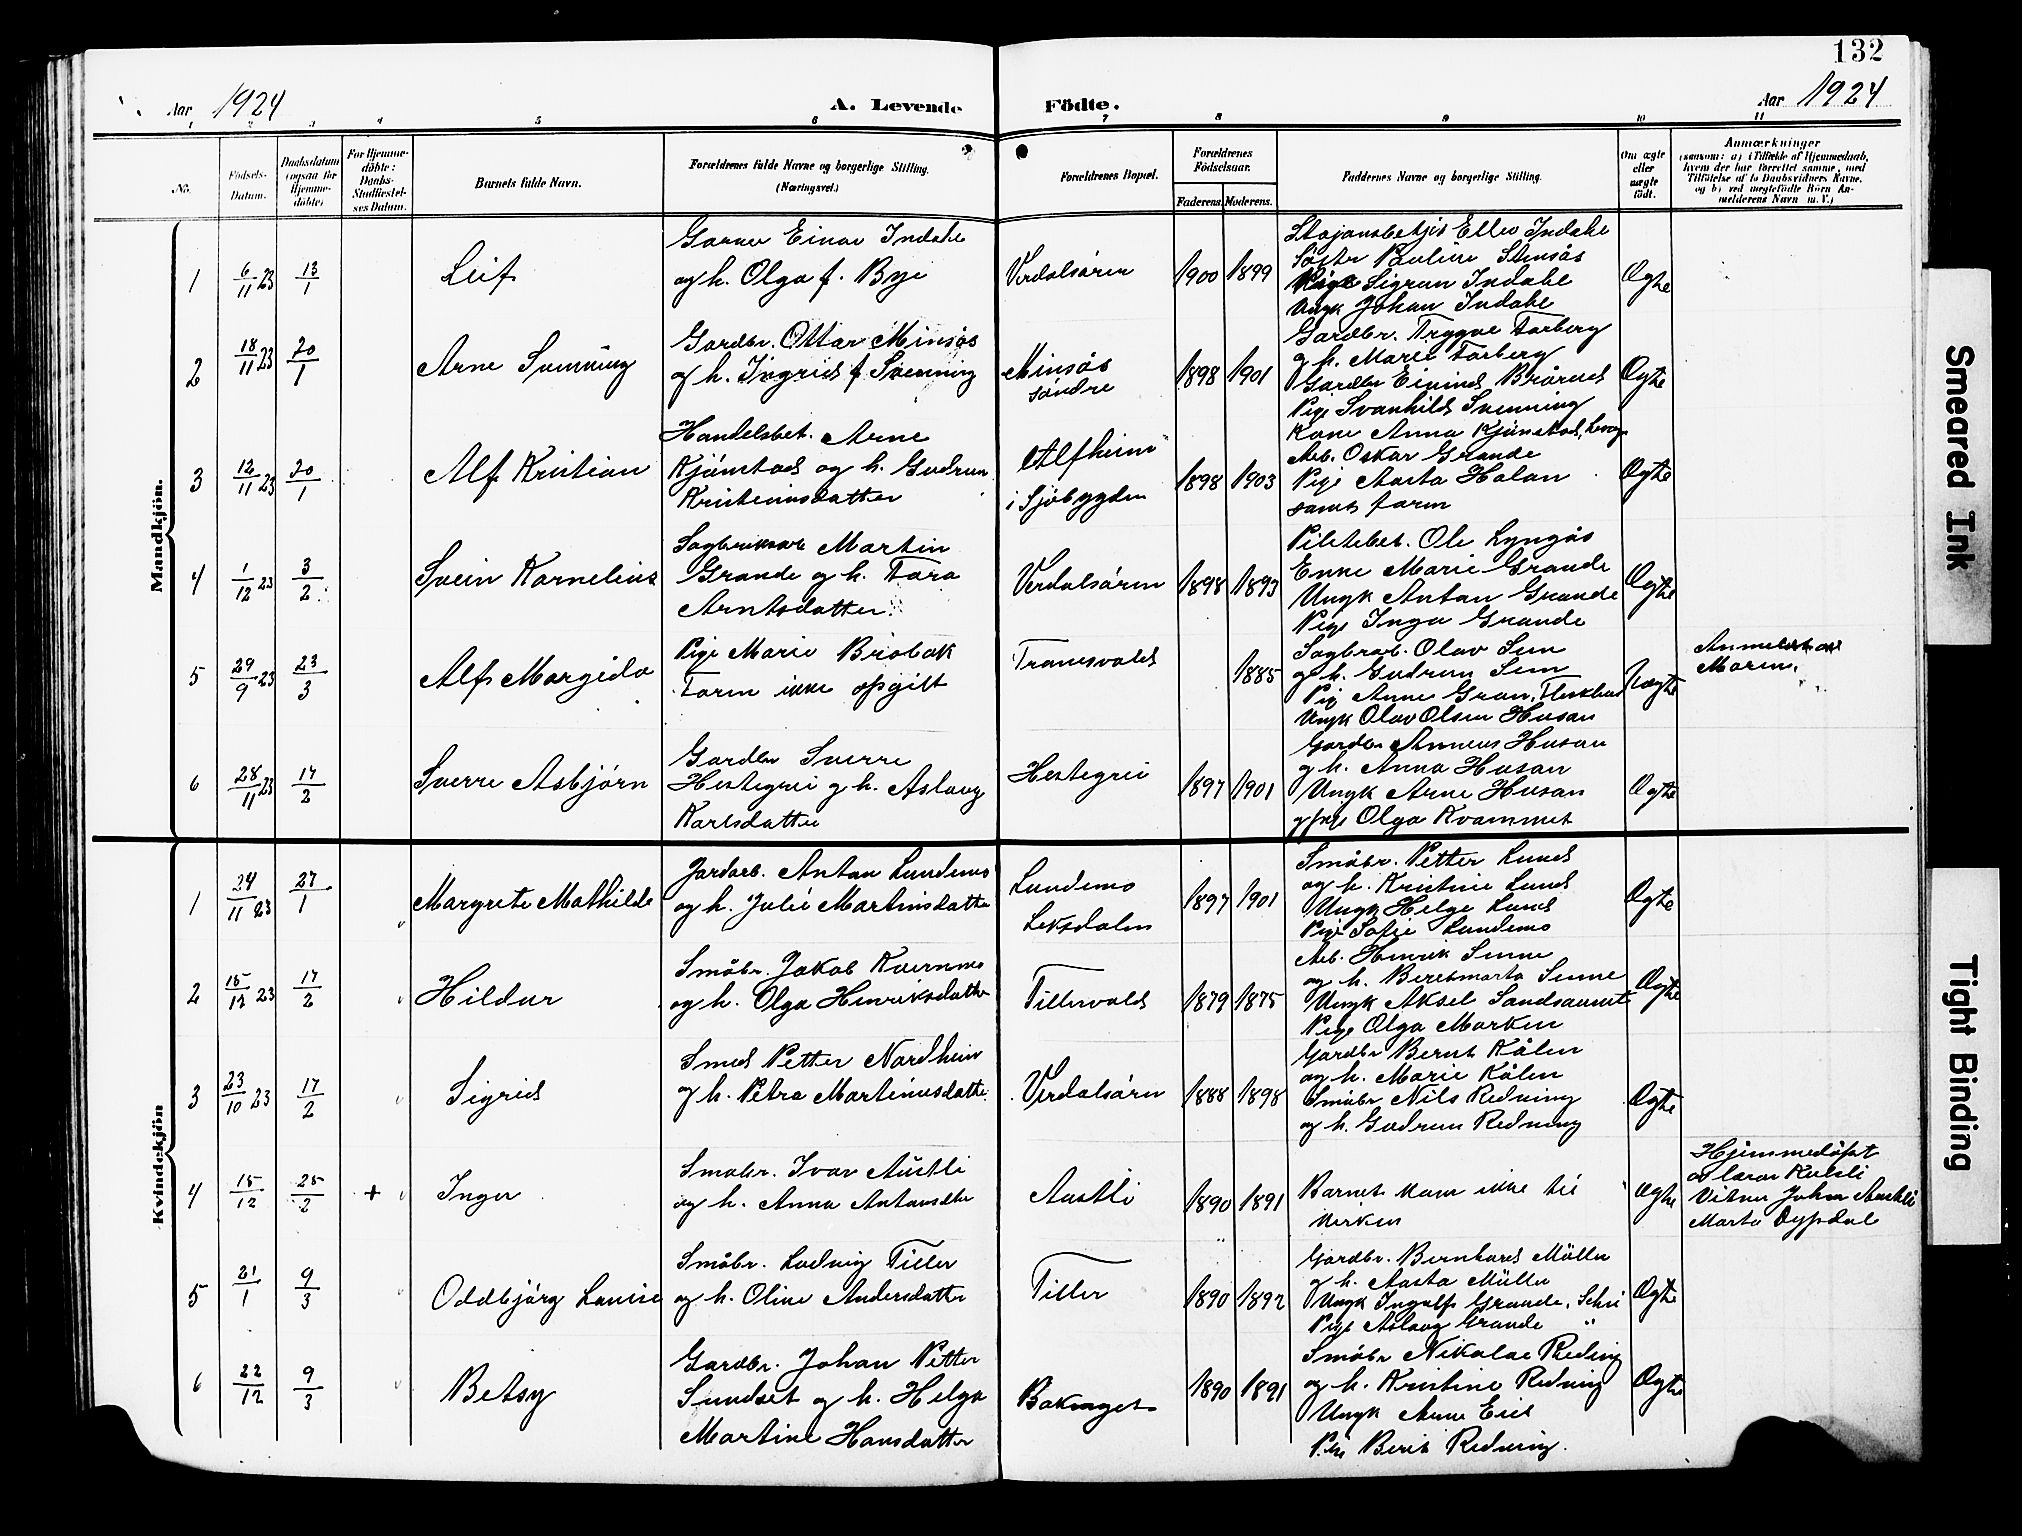 132
Aar 1924
A. Levende Födte.
Aar 1924
1 2 3 4 5 6 7 8 9 10 11
No.
Födsels-
Datum.
Daabsdatum
(ogsaa for
Hjemme-
döbte)
For Hjemme-
döbte:
Daabs-
Stadfæstel-
ses Datum.
Barnets fulde Navn.
Forældrenes fulde Navne og borgerlige Stilling.
(Næringsvei.)
Forældrenes Bopæl.
Forældrenes
Födselsaar.
Faderens. Moderens.
Faddernes Navne og borgerlige Stilling.
Om ægte
eller
uægte
födt.
Anmærkninger
(saasom: a) i Tilfælde af Hjemmedaab,
hvem der har forrettet samme, med
Tilföielse af to Daabsvidners Navne,
og b) ved uægtefödte Börn An-
melderens Navn m. V.)
Mandkjön.
1
6/11 23
13/1
Leif
Garver Einar Indahl
og h. Olga f. Bye
Verdalsøren
1900 1899
Ellev Indahl
Pauline Stensøs
Pige Sigrun Indahl
Ungk Johan Indahl
Ægte
2
18/11 23
20/1
Arne Svenning
Gardbr. Ottar Minsås
og h. Ingrid f. Svenning
Minsås
søndre
1898 1901
Gardbr. Trygve Farberg
og h. Marie Farberg
Gardbr Eivind Brårud
Pige Svanhild Svenning
Ægte
3
12/11 23
20/1
Alf Kristian
Handelsbet. Arne
Kjønstad og h. Gudrun
Kristensdatter
Alfheim
i Sjøbygden
1898 1903
Kone Anna Kjønstad,
Arb. Oskar Grande
Pige Aasta Halan
samt farm
Ægte
4
1/12 23
3/2
Svein Kornelius
Sagbruksarb Martin
Grande og h. Tora
Arntsdatter
Verdalsøren
1898 1893
Piletebet. Ole Lyngås
Enke Marie Grande
Ungk Anton Grande
Pige Inga Grande
Ægte
5
29/9 23
23/3
Alf Margido
Pige Marie Brobak
Farm ikke opgitt
Tranesvald
1885
Sagbrarb. Olav Sem
og h. Gudrun Sem
Pig Anne Gran,
Ungk Olav Olsen Husan
Uægte
Anmeldt av
Moren.
6
28/11 23
17/2
Sverre Asbjørn
Gardbr Sverre
Hestegrei og h. Aslaug
Karlsdatter
Hestegrei
1897 1901
Gardbr Anneus Husan
og h. Anna Husan
Ungk Arne Husan
og Pige Olga Kvammet
Ægte
Kvindekjön
1
24/11 23
27/1
Margrete Mathilde
Jordarb. Anton Lundemo
og h. Julie Martinsdatter
Lundemo
Leksdalen
1897 1901
Småbr. Petter Lund
og h. Kristine Lund
Ungk Helge Lund
Pige Sofie Lundemo
Ægte
2
15/12 23
17/2
Hildur
Småbr. Jakob Kvernmo
og h. Olga Henriksdatter
Tillervald
1879 1875
Arb. Henrik Sende
og h. Beretmarta Sende
Ungk Aksel Sandsaunet
Pige Olga Marken
Ægte
3
23/10 23
17/2
Sigrid
Smed Petter Nordheim
og h. Petra Martinusdatter
Verdalsøren
1888 1898
Gardbr Bernt Kålen
og h. Marie Kålen
Småbr Nils Redning
og h. Gudrun Redning
Ægte
4
15/12
25/2
+
Inger
Småbr. Ivar Austli
og h. Anna Antonsdtr
Austli
1890 1891
Barnet kom ikke til
kirken
Ægte
Hjemmedøpt
av lærar Kulsli
Vitner John Austli
Marta Oppdal
5
21/1
9/3
Oddbjørg Louise
Småbr. Ludvig Tiller
og h. Oline Andersdatter
Tiller
1890 1892
Gardbr. Bernhard Müller
og h. Aasta Müller
Ungk Ingolf Grande,
Pige Aslaug Grande "
Ægte
6
22/12
9/3
Betsy
Gardbr. Johan Petter
Sundset og h. Helga
Martine Hansdatter
Bakenget
1890 1891
Småbr Nikolai Redning
og h. Kristine Redning
Ungk Arne Eid
Pige Berit Redning.
Ægte
Smeared Ink
Tight Binding